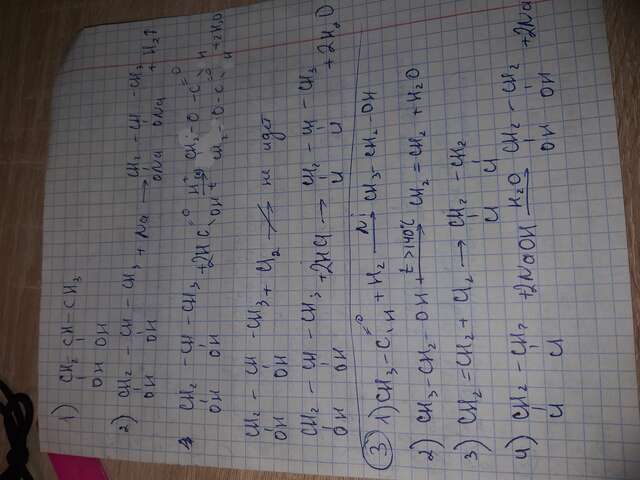 1) CH₂ CH – CH₃
OH OH
2) CH₂ – CH – CH₃ + Na → CH₂ – CH – CH₃ + H₂↑
OH OH ONa ONa
CH₂ – CH – CH₃ + 2HC =O OH H⁺ t CH₂ – O – C =O H
OH OH CH₂ – O – C =O H + 2H₂O
CH₂ – CH – CH₃ + Cl₂ не идет
OH OH
CH₂ – CH – CH₃ + 2HCl → CH₂ – CH – CH₃ + 2H₂O
OH OH Cl Cl
③ 1) CH₃ – C =O H + H₂ Ni → CH₃ – CH₂ – OH
2) CH₃ – CH₂ – OH + t >140°C → CH₂ = CH₂ + H₂O
3) CH₂ = CH₂ + Cl₂ → CH₂ – CH₂
Cl Cl
4) CH₂ – CH₂ + 2NaOH H₂O → CH₂ – CH₂ + 2Na
Cl Cl OH OH